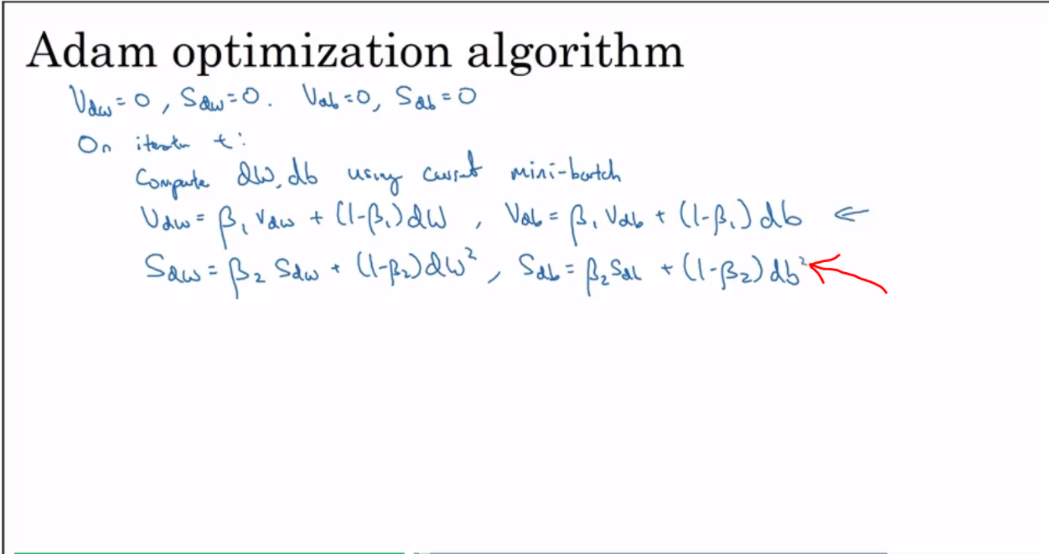 Adam optimization algorithm
V_dw = 0, S_dw = 0. V_db = 0, S_db = 0
On iteration t:
Compute dW, db using current mini-batch
V_dw = β₁ V_dw + (1-β₁) dW, V_db = β₁ V_db + (1-β₁) db ←
S_dw = β₂ S_dw + (1-β₂) dW², S_db = β₂ S_db + (1-β₂) db²